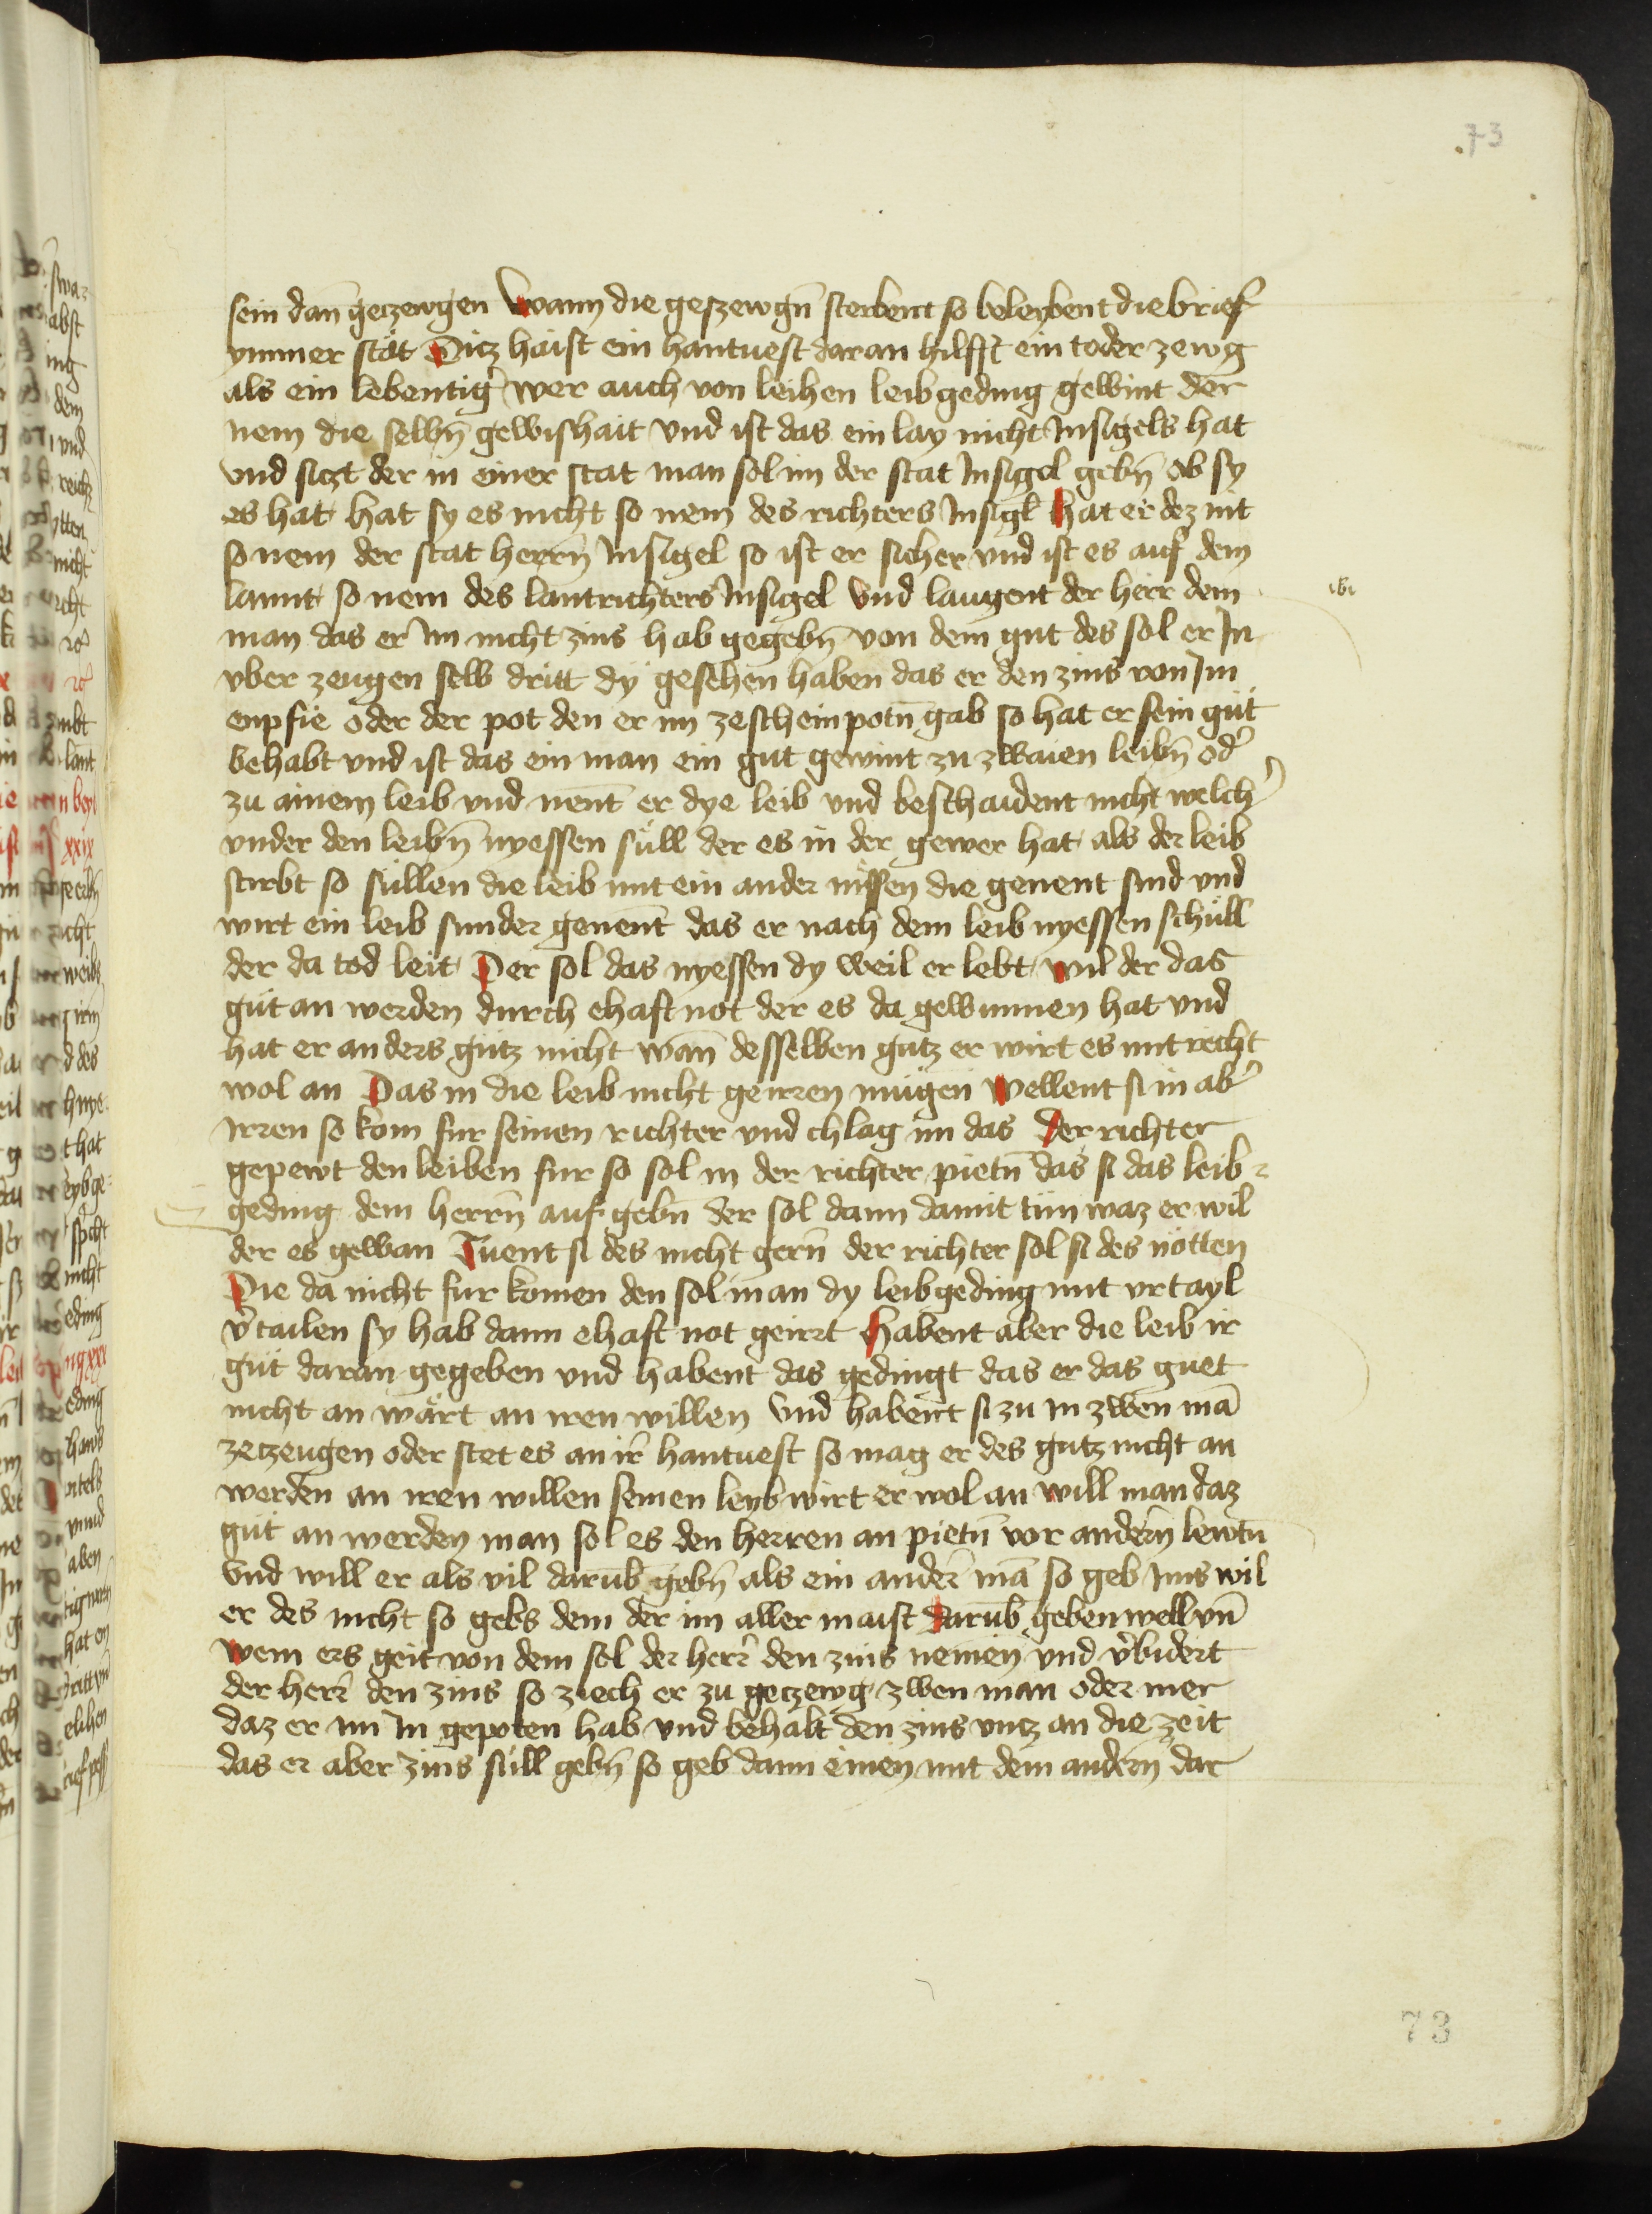 73
sein dan̄ geczewgen Wann die geszewgn̄ sterbent so beleybent die brief
ymmer stät Ditz haist ein hantuest daran hilfft ein toder zewg
als ein lebentig̉ wer auch von leihen leibgeding gewint der
nem die selbn̄ gewishait vnd ist das ein lay nicht Insigels hat
vnd siczt der in einer stat man sol im der stat Insigel gebn̄ ob sy
es hat hat sy es nicht so nem des richters Insigl hat er dez nit
so nem der stat herrn̄ Insigel so ist er sicher vnd ist es auf dem
lannt so nem des lantrichters Insigel Vnd laugent der herr dem
man das er Im nicht zins hab gegebn̄ von dem gut des sol er In
vber zeugen selb dritt dy gesehen haben das er den zins von Im
enpfie oder der pot den er im ze schein potn̄ gab so hat er sein gůt
behabt vnd ist das ein man ein gut gewint zu zwaien leibn̄ od̉
zu ainem leib vnd nent̄ er dye leib vnd beschaident nicht welch̉
vnder den leibn̄ nyessen süll der es in der gewer hat als der leib
stirbt so süllen die leib mit ein ander nissen die genent sind vnd
wirt ein leib sunder genent̄ das er nach dem leib nyessen schüll
der da tod leit Der sol das nyessen dy weil er lebt wil der das
gůt an werden durch ehaft not der es da gewunnen hat vnd
hat er anders gůtz nicht wan̄ desselben gutz er wirt es mit recht
wol an Das in die leib nicht geirren mügen Wellent si in ab̉
irren so kom fur seinen richter vnd chlag im das Der richter
gepewt den leiben fur so sol in der richter pietn̄ das si das leib
geding dem herrn̄ auf gebn̄ der sol dann damit tün waz er wil
der es gewan Tuent si des nicht gern̄ der richter sol si des nötten
Die da nicht fur komen den sol man dy leibgeding mit vrtayl
v̉tailen sy hab dann ehaft not geirrt Habent aber die leib ir
gůt daran gegeben vnd habent das gedingt das er das guet
nicht an wärt an iren willen Vnd habent si zu in zwen mā
ze czeugen oder stet es an ir̄ hantuest so mag er des gutz nicht an
werden an iren willen seinen leyb wirt er wol an Will man daz
gůt an werden man sol es den herren an pietn̄ vor andern̄ lewtn̄
Vnd will er als vil darūb gebn̄ als ein ander̄ mā so geb Ims wil
er des nicht so gebs dem der im aller maist darūb geben well vn̄
wem ers geit von dem sol der herr̄ den zins nemen vnd v̉bidert
der herr̄ den zins so ziech er zu geczewg zwen man oder mer
daz er im In gepoten hab vnd behalt den zins vntz an die zeit
das er aber zins süll gebn̄ so geb dann einen mit dem andern̄ dar
73